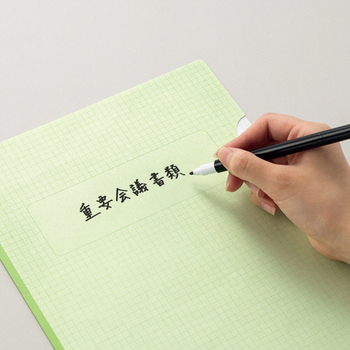 重要会議書類